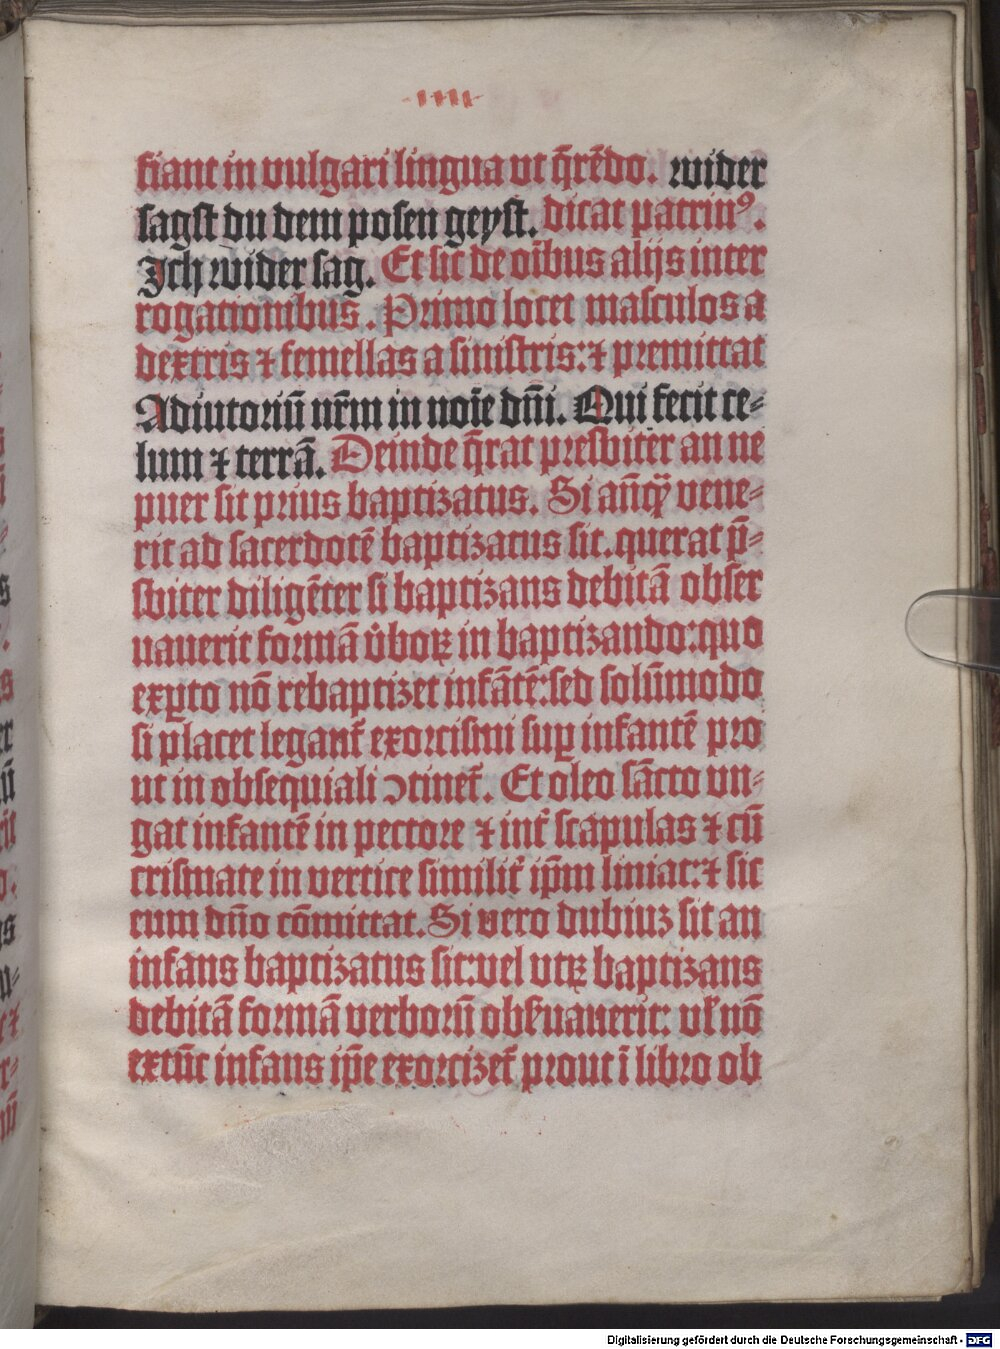 IIII
fiant in vulgari lingua vt q̄rēdo. wider
sagst du dem posen geyst. dicat patrinꝰ.
Ich wider sag. Et sic de oībus alijs inter
rogationibus. Primo locet masculos a
dextris ⁊ femellas a sinistris: ⁊ premittat
Adiutoriū nr̄m in noīe dn̄i. Qui fecit ce⸗
lum ⁊ terrā. Deinde q̄rat presbiter an ne
puer sit prius baptizatus. Si an̄tꝙ vene⸗
rit ad sacerdotē baptizatus sit. querat p̄⸗
sbiter diligēter si baptizans debitā obser
uauerit formā v̓boꝝ in baptizando: quo
exꝑto nō rebaptizet infātē: sed solūmodo
si placet legant᷑ exorcismi suꝑ infantē pro
ut in obsequiali ↄtinet᷑. Et oleo sācto vn⸗
gat infantē in pectore ⁊ int᷑ scapulas ⁊ cū
crismate in vertice similit᷑ ip̄m liniat: ⁊ sic
cum dn̄o cōmittat. Si vero dubiuz sit an
infans baptizatus sit: vel vtꝝ baptizans
debitā formā verborū obẜuauerit: vł nō
extūc infans ip̄e exorcizet᷑ prout ī libro ob
Digitalisierung gefördert durch die Deutsche Forschungsgemeinschaft - DFG